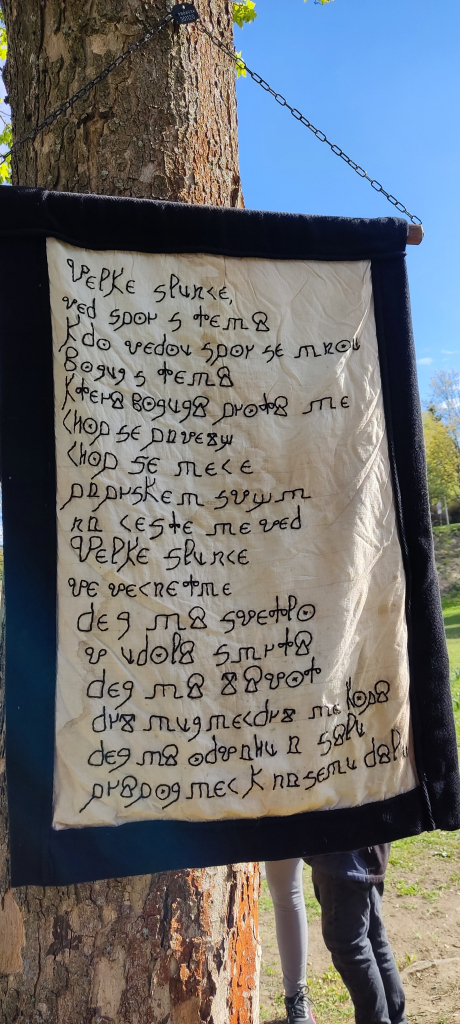 Velke slunce,
ved spor s temi
Kdo vedou spor se mnou
Bojuj s temi
Kteri bojuji proti me
Chop se pavezy
Chop se mece
paprskem svym
na ceste me ved
Velke slunce
ve vecne tme
dej mi svetlo
v udoli smrti
dej mi zivot
drz muj mec drz me kopi
dej mi odvahu a silu
pripoj mec k nasemu dilu